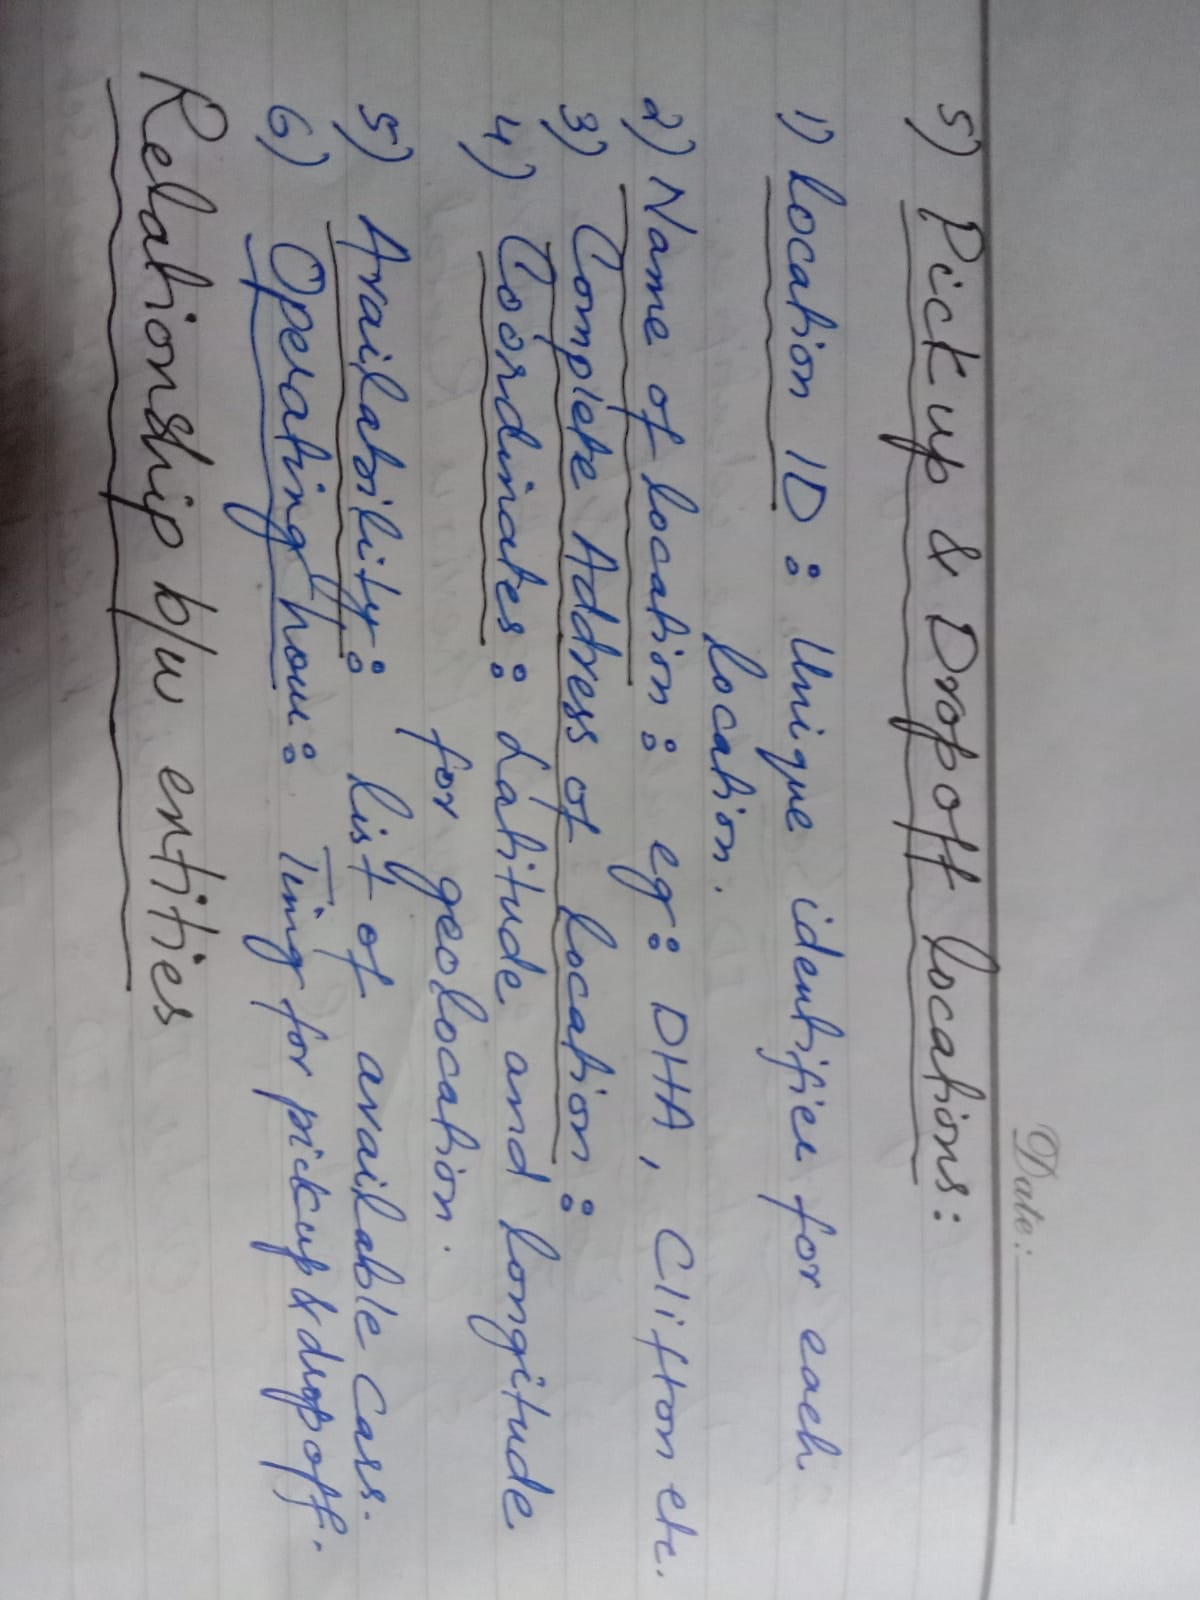 Date:
5) Pickup & Dropoff locations:
1) location ID : Unique identifier for each
location.
2) Name of location : eg : DHA, Clifton etc.
3) Complete Address of location :
4) Coordinates : Latitude and longitude
for geolocation.
5) Availability : list of available cars.
6) Operating hour : Timg for pickup & dropoff.
Relationship b/w entities